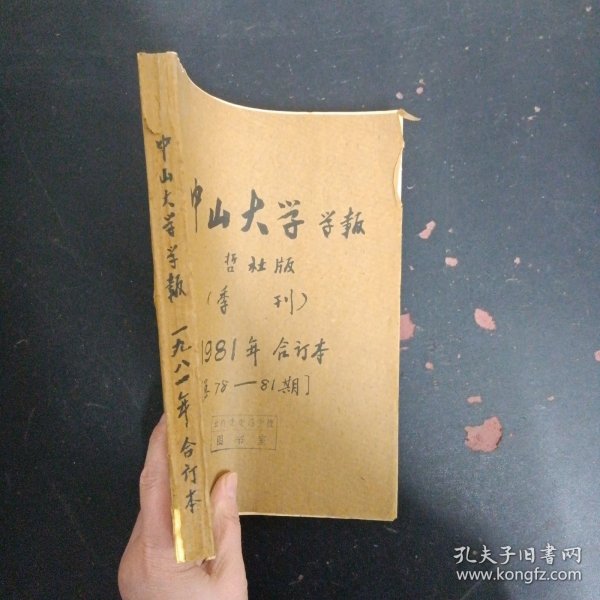 中山大学学報 一九八一年合订本
中山大学学報
哲社版
(季刊)
1981年合订本
78—81期]
图书室
孔夫子旧书网
www.kongfz.com